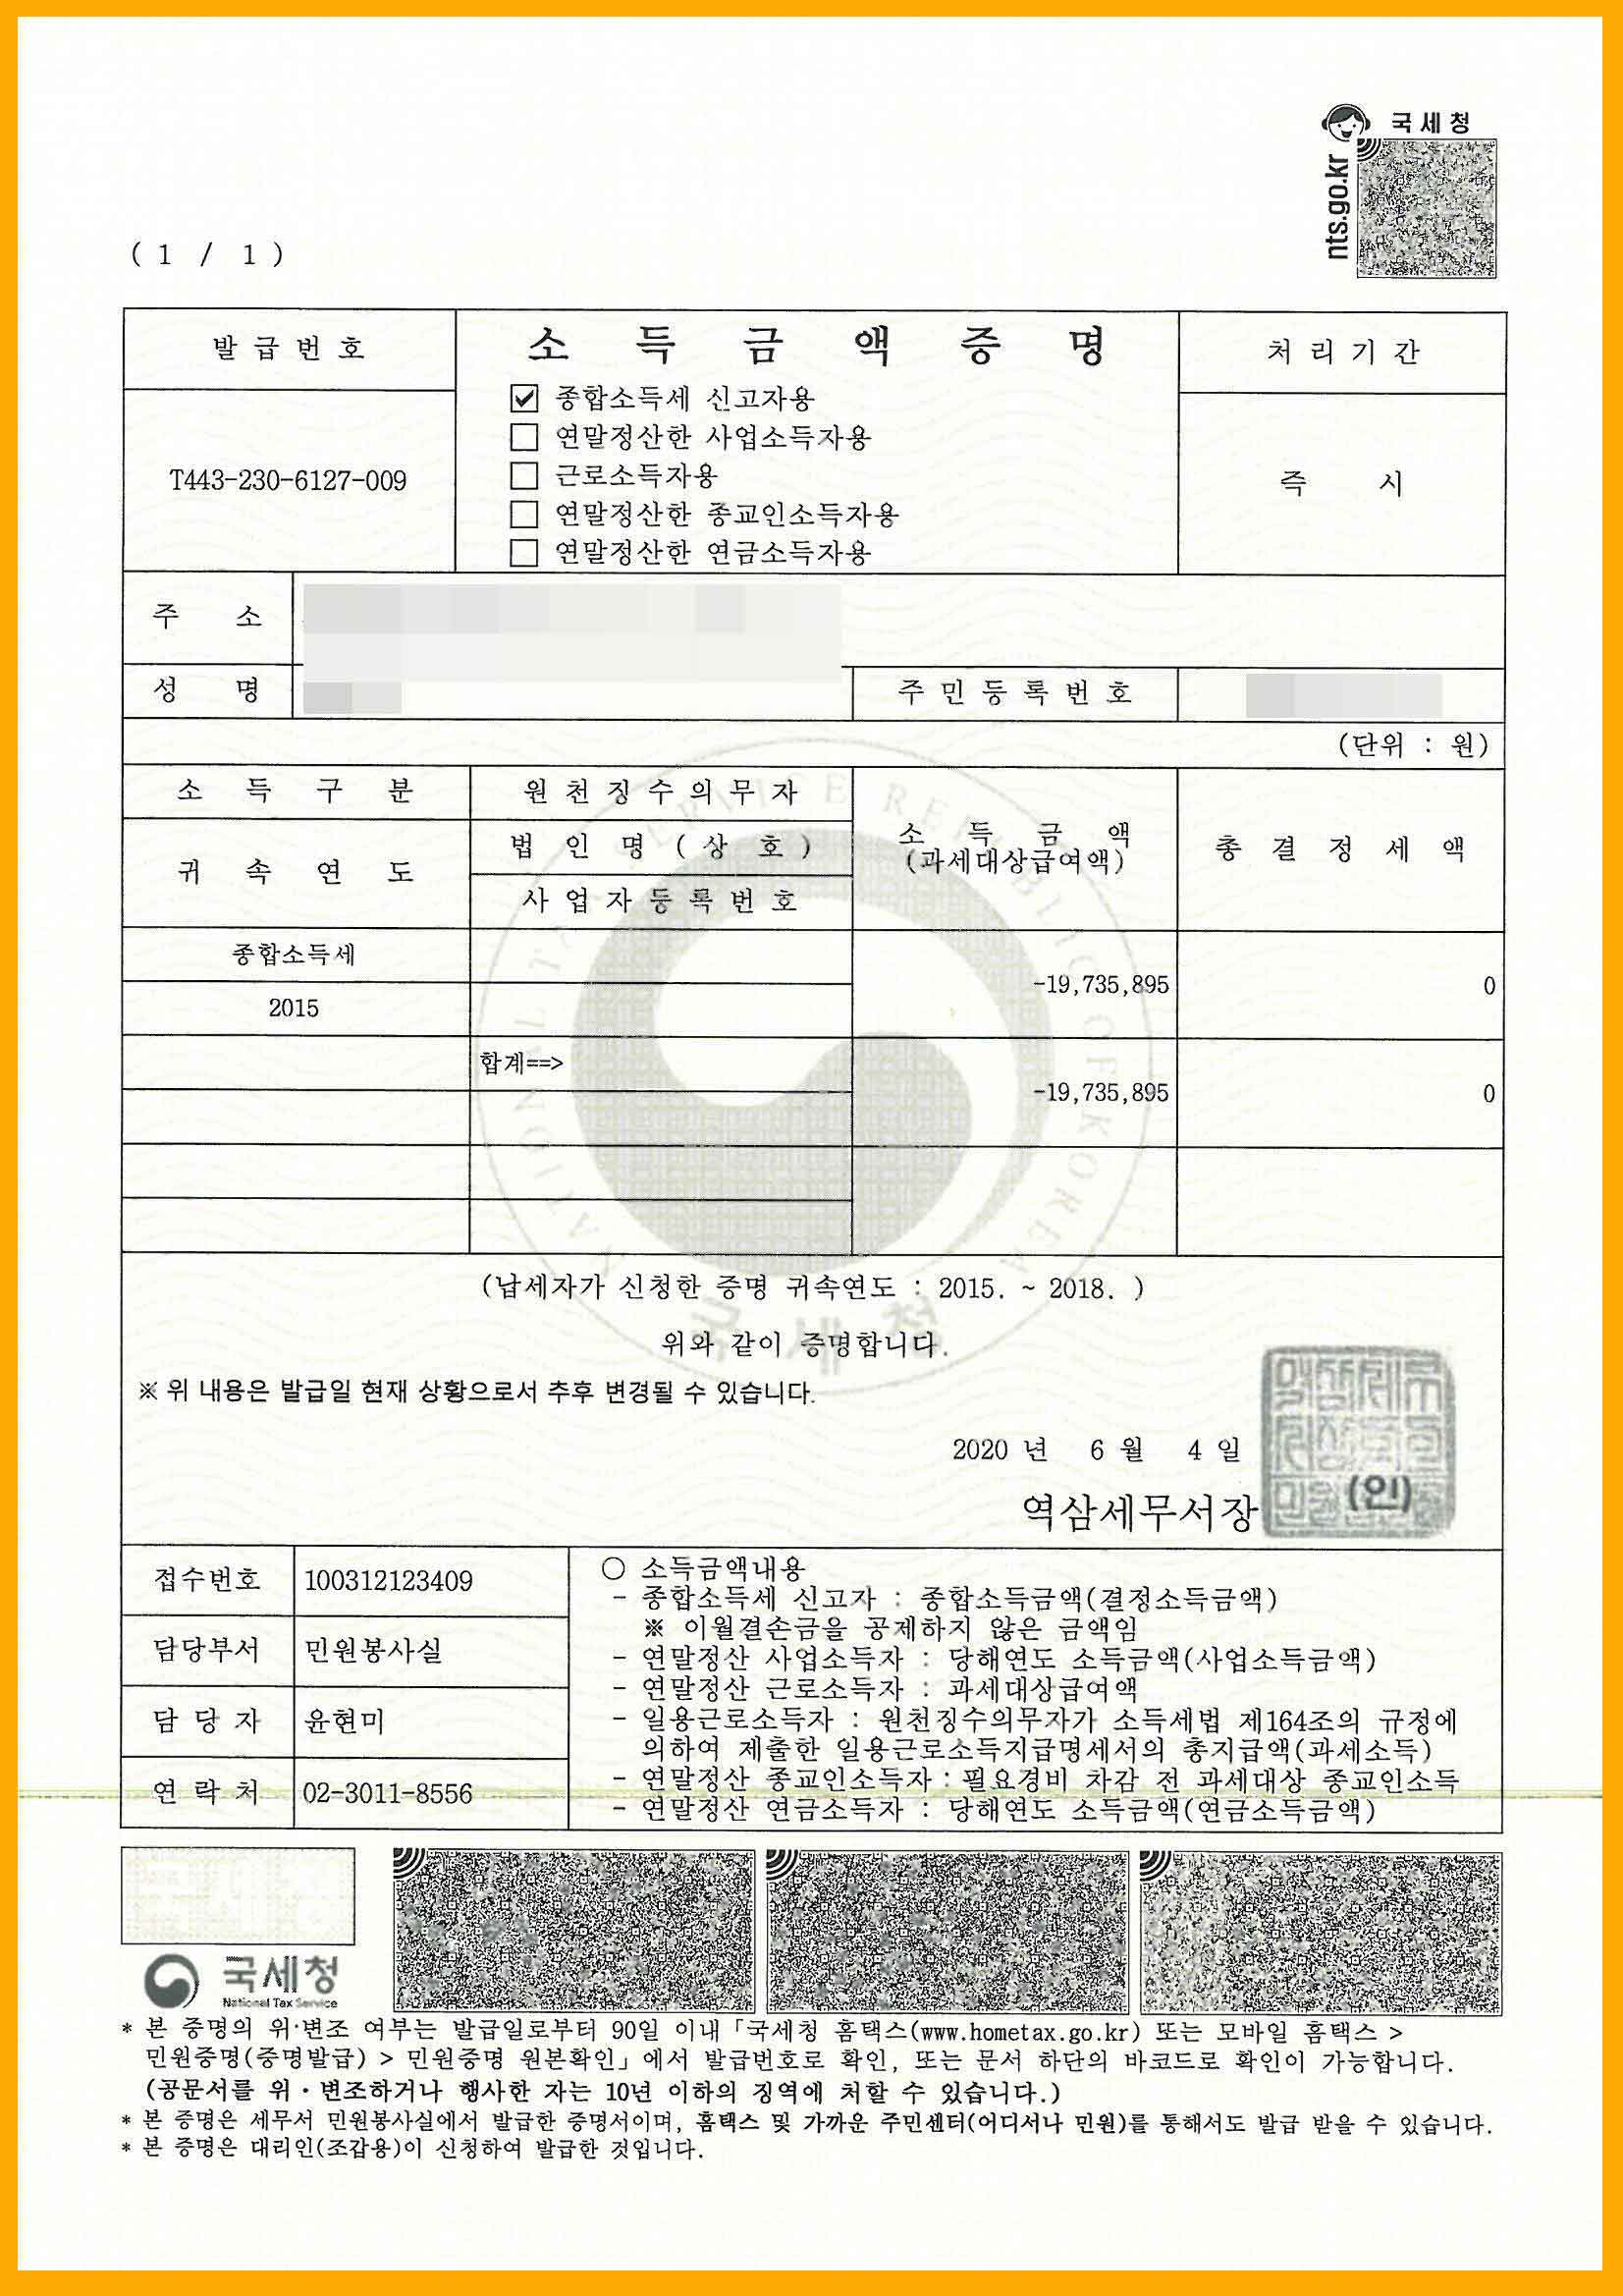 국세청
nts.go.kr
( 1 / 1 )
발급번호
소 득 금 액 증 명
처리기간
☑ 종합소득세 신고자용
☐ 연말정산한 사업소득자용
T443-230-6127-009
☐ 근로소득자용
즉 시
☐ 연말정산한 종교인소득자용
☐ 연말정산한 연금소득자용
주 소
성 명
주민등록번호
(단위 : 원)
소 득 구 분
원천징수의무자
소 득 금 액
(과세대상급여액)
총 결 정 세 액
귀 속 연 도
법 인 명 ( 상 호 )
사업자등록번호
종합소득세
-19,735,895
0
2015
합계==>
-19,735,895
0
NATIONAL TAX SERVICE REPUBLIC OF KOREA
국세청
(납세자가 신청한 증명 귀속연도 : 2015. ~ 2018. )
위와 같이 증명합니다.
※ 위 내용은 발급일 현재 상황으로서 추후 변경될 수 있습니다.
2020 년 6 월 4 일
역삼세무서장
(인)
접수번호 100312123409
담당부서 민원봉사실
담 당 자 윤현미
연 락 처 02-3011-8556
○ 소득금액내용
- 종합소득세 신고자 : 종합소득금액(결정소득금액)
※ 이월결손금을 공제하지 않은 금액임
- 연말정산 사업소득자 : 당해연도 소득금액(사업소득금액)
- 연말정산 근로소득자 : 과세대상급여액
- 일용근로소득자 : 원천징수의무자가 소득세법 제164조의 규정에
의하여 제출한 일용근로소득지급명세서의 총지급액(과세소득)
- 연말정산 종교인소득자 : 필요경비 차감 전 과세대상 종교인소득
- 연말정산 연금소득자 : 당해연도 소득금액(연금소득금액)
국세청
National Tax Service
* 본 증명의 위·변조 여부는 발급일로부터 90일 이내「국세청 홈택스(www.hometax.go.kr) 또는 모바일 홈택스 >
민원증명(증명발급) > 민원증명 원본확인」에서 발급번호로 확인, 또는 문서 하단의 바코드로 확인이 가능합니다.
(공문서를 위·변조하거나 행사한 자는 10년 이하의 징역에 처할 수 있습니다.)
* 본 증명은 세무서 민원봉사실에서 발급한 증명서이며, 홈택스 및 가까운 주민센터(어디서나 민원)를 통해서도 발급 받을 수 있습니다.
* 본 증명은 대리인(조갑용)이 신청하여 발급한 것입니다.